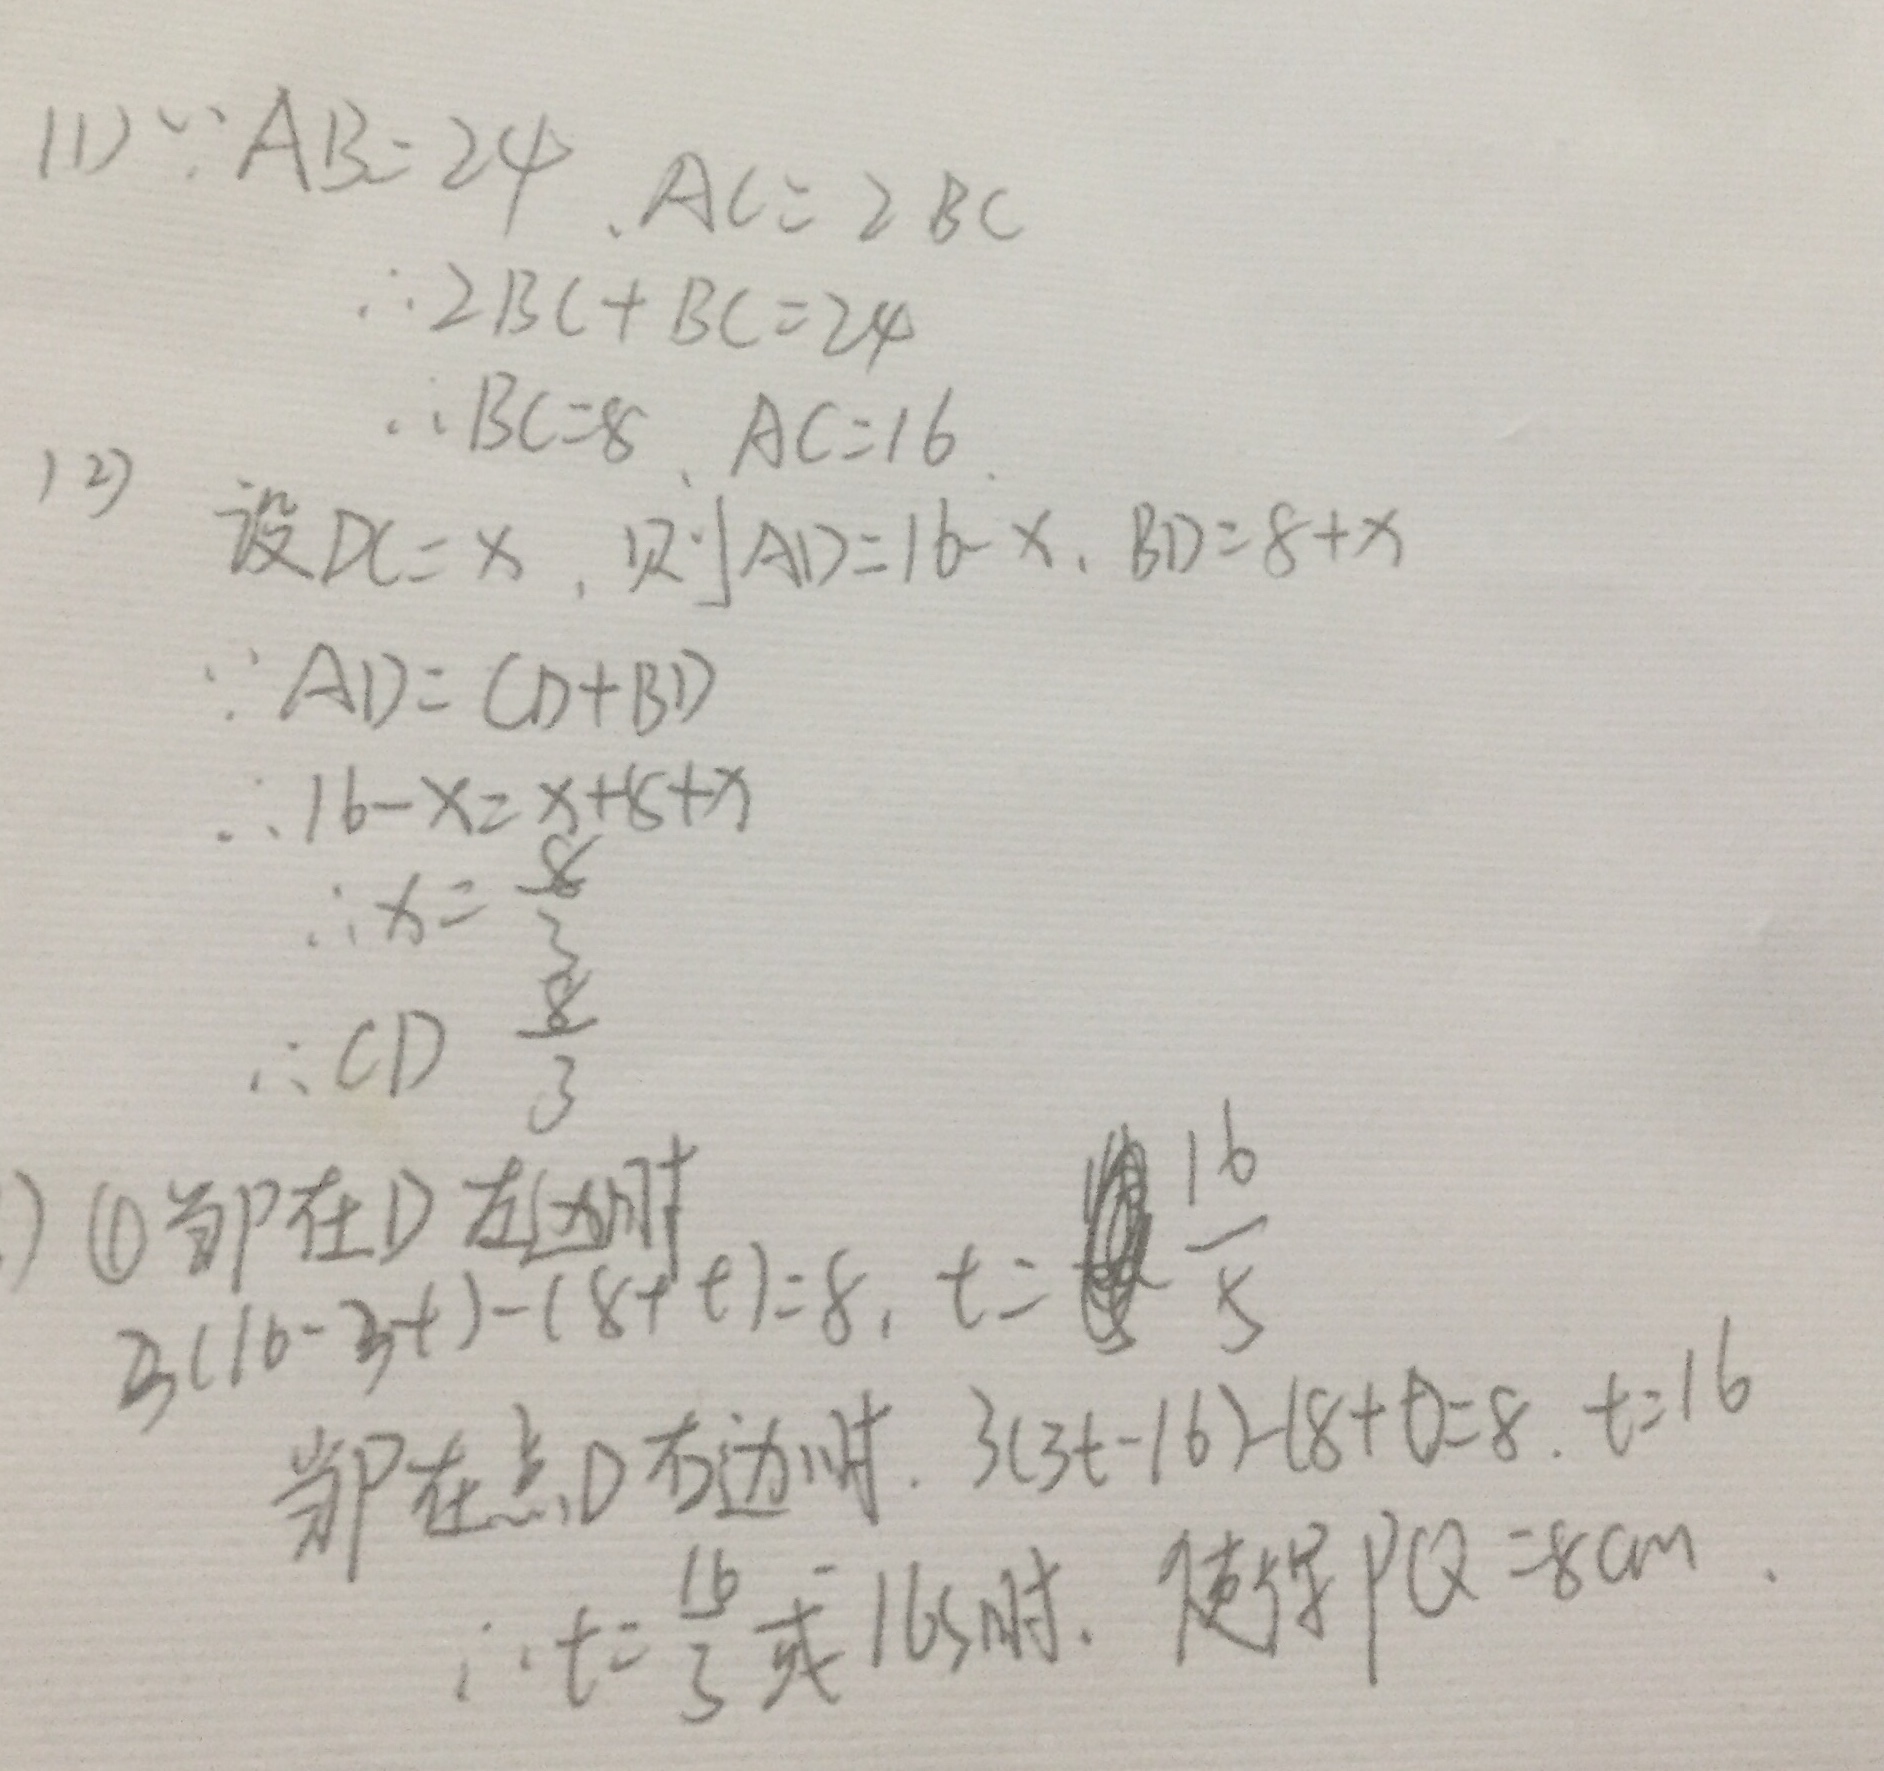 (1) ∵ AB=24、AC=2BC
∴2BC+BC=24
∴BC=8、AC=16.
(2)
设DC=x，则AD=16-x，BD=8+x
∵AD=CD+BD
∴16-x=x+8+x
∴x=8/3
∴CD 8/3
) ①当P在D左边时
3(16-3t)-(8+t)=8，t=16/5
当P在点D右边时，3(3t-16)-(8+t)=8. t=16
∴t=16/3或16s时，使得PQ=8cm.